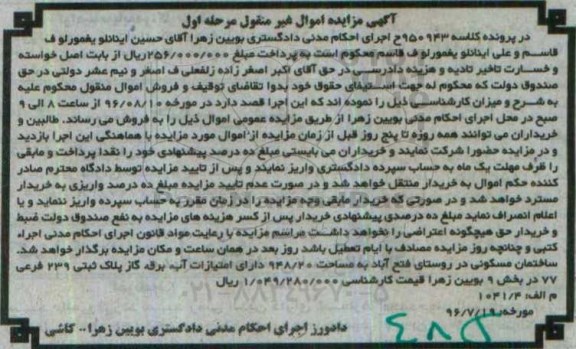 آگهی مزایده اموال غیر منقول مرحله اول
در پرونده کلاسه ۹۵۰۹۴۳ح اجرای احکام مدنی دادگستری بویین زهرا آقای حسین اینانلو یغمورلو ف
قاسم و علی اینانلو یغمورلو ف قاسم محکوم است به پرداخت مبلغ ۲۵۶/۰۰۰/۰۰۰ریال از بابت اصل خواسته
و خسارت تاخیر تادیه و هزینه دادرسی در حق آقای اکبر اصغر زاده زلفعلی ف اصغر و نیم عشر دولتی در حق
صندوق دولت که محکوم له جهت استیفای حقوق خود بدوا تقاضای توقیف و فروش اموال منقول محکوم علیه
به شرح و میزان کارشناسی ذیل را نموده اند که این اجرا قصد دارد در مورخه ۹۶/۰۸/۱۰ از ساعت ۸ الی ۹
صبح در محل اجرای احکام مدنی بویین زهرا از طریق مزایده عمومی اموال ذیل را به فروش می رساند. طالبین و
خریداران می توانند همه روزه تا پنج روز قبل از زمان مزایده از اموال مورد مزایده با هماهنگی این اجرا بازدید
و در مزایده حضورا شرکت نمایند و خریداران می بایستی مبلغ ده درصد پیشنهادی خود را نقدا پرداخت و مابقی
را ظرف مهلت یک ماه به حساب سپرده دادگستری واریز نمایند و پس از تایید مزایده توسط دادگاه محترم صادر
کننده حکم اموال به خریدار منتقل خواهد شد و در صورت عدم تایید مزایده مبلغ ده درصد واریزی به خریدار
مسترد خواهد شد و در صورتی که خریدار مابقی وجه مزایده را در زمان مقرر به حساب سپرده واریز ننماید و یا
اعلام انصراف نماید مبلغ ده درصدی پیشنهادی خریدار پس از کسر هزینه های مزایده به نفع صندوق دولت ضبط
و خریدار حق هیچگونه اعتراضی را نخواهد داشت مراسم مزایده با رعایت مواد قانون اجرای احکام مدنی اجراء
کتبی و چنانچه روز مزایده مصادف با ایام تعطیل باشد روز بعد در همان ساعت و مکان مزایده برگذار خواهد شد.
ساختمان مسکونی در روستای فتح آباد به مساحت ۹۴۸/۲۰ دارای امتیازات آب، برق، گاز پلاک ثبتی ۲۳۹ فرعی
۷۷ در بخش ۹ بویین زهرا قیمت کارشناسی ۱/۰۴۹/۲۸۰/۰۰۰ ریال
م الف: ۱۰۴۱/۴
مورخه: ۹۶/۷/۱۹
دادورز اجرای احکام مدنی دادگستری بویین زهرا.. کاشی